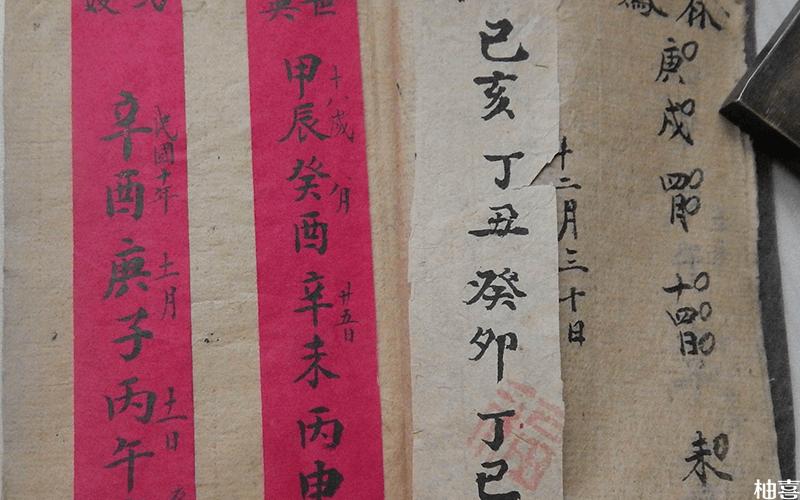 庚戌四月十四日未
十二月三十日
己亥丁丑癸卯丁巳
福
十八歲八月廿五日
甲辰癸酉辛未丙申
民國十年十一月十一日
辛酉庚子丙午
柚喜